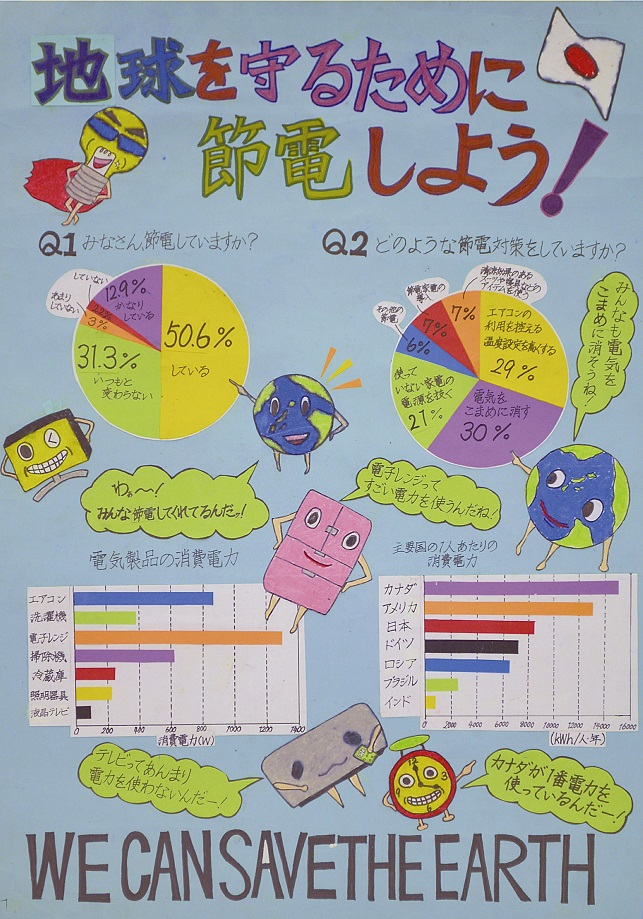 地球を守るために
節電しよう!
Q1 みなさん、節電していますか?
Q2 どのような節電対策をしていますか?
していない
12.9%
かなり
している
あまり
していない
3%
50.6%
している
31.3%
いつもと
変わらない
清涼効果のある
スーツや寝具などの
アイテムを使う
7%
節電家電の
導入
7%
その他の
節電
6%
エアコンの
利用を控える
温度設定を高くする
29%
使って
いない家電の
電源を抜く
21%
電気を
こまめに消す
30%
みんなも電気を
こまめに消そうね!
わぁ〜!
みんな節電してくれてるんだッ!
電子レンジって
すごい電力を使うんだね!
電気製品の消費電力
エアコン
洗濯機
電子レンジ
掃除機
冷蔵庫
照明器具
液晶テレビ
0 200 400 600 800 1000 1200 1400
消費電力(W)
主要国の1人あたりの
消費電力
カナダ
アメリカ
日本
ドイツ
ロシア
ブラジル
インド
0 2000 4000 6000 8000 10000 12000 14000 16000
(kWh/人・年)
テレビってあんまり
電力を使わないんだー!
カナダが1番電力を
使っているんだー!
WE CAN SAVE THE EARTH